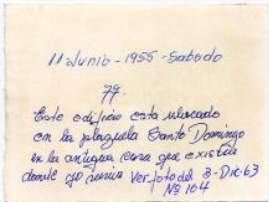 11 Junio - 1955 - Sabado
79.
Este edificio esta ubicado
en la plazuela Santo Domingo
en la antigua casa que existia
donde yo Ver foto del 3-Dic-63
Nº 104